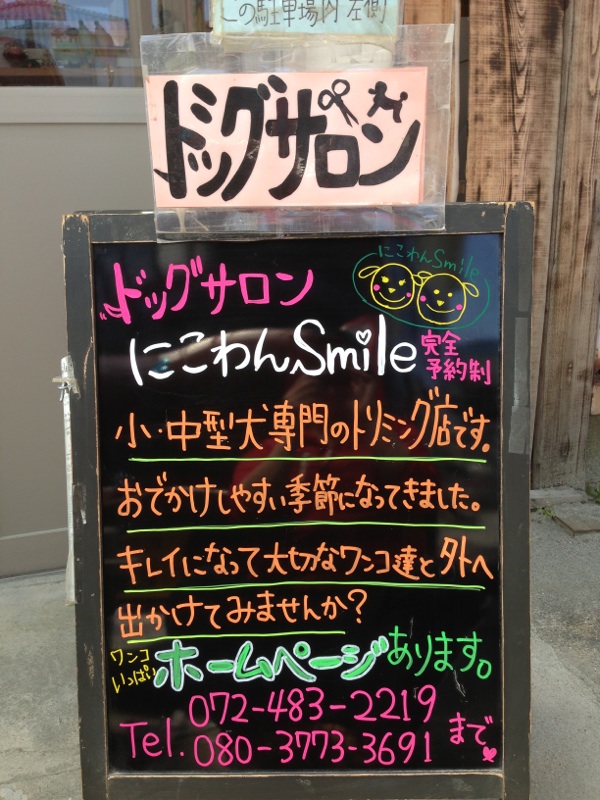 この駐車場内 左側
ドッグサロン
にこわんSmile
ドッグサロン
にこわんSmile
完全
予約制
小・中型犬専門のトリミング店です。
おでかけしやすい季節になってきました。
キレイになって大切なワンコ達と外へ
出かけてみませんか?
ワンコ
いっぱい
ホームページあります。
072-483-2219
Tel. 080-3773-3691 まで